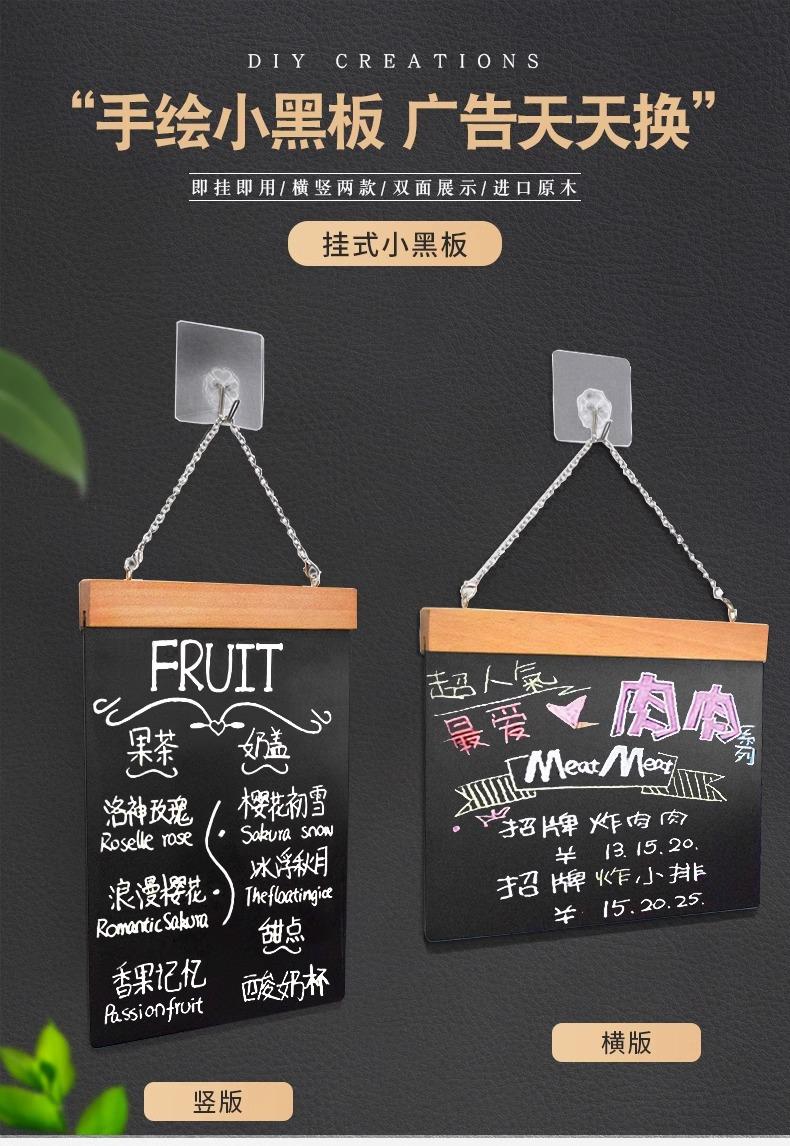 DIY CREATIONS
“手绘小黑板 广告天天换”
即挂即用/横竖两款/双面展示/进口原木
挂式小黑板
FRUIT
果茶
洛神玫瑰
Roselle rose
浪漫樱花
Romantic Sakura
香果记忆
Passion fruit
奶盖
樱花初雪
Sakura snow
冰浮秋月
Thefloatingice
甜点
酸奶杯
竖版
超人氣
最爱 肉肉 系列
Meat Meat
招牌 炸肉肉
¥ 13.15.20.
招牌 炸小排
¥ 15.20.25.
横版